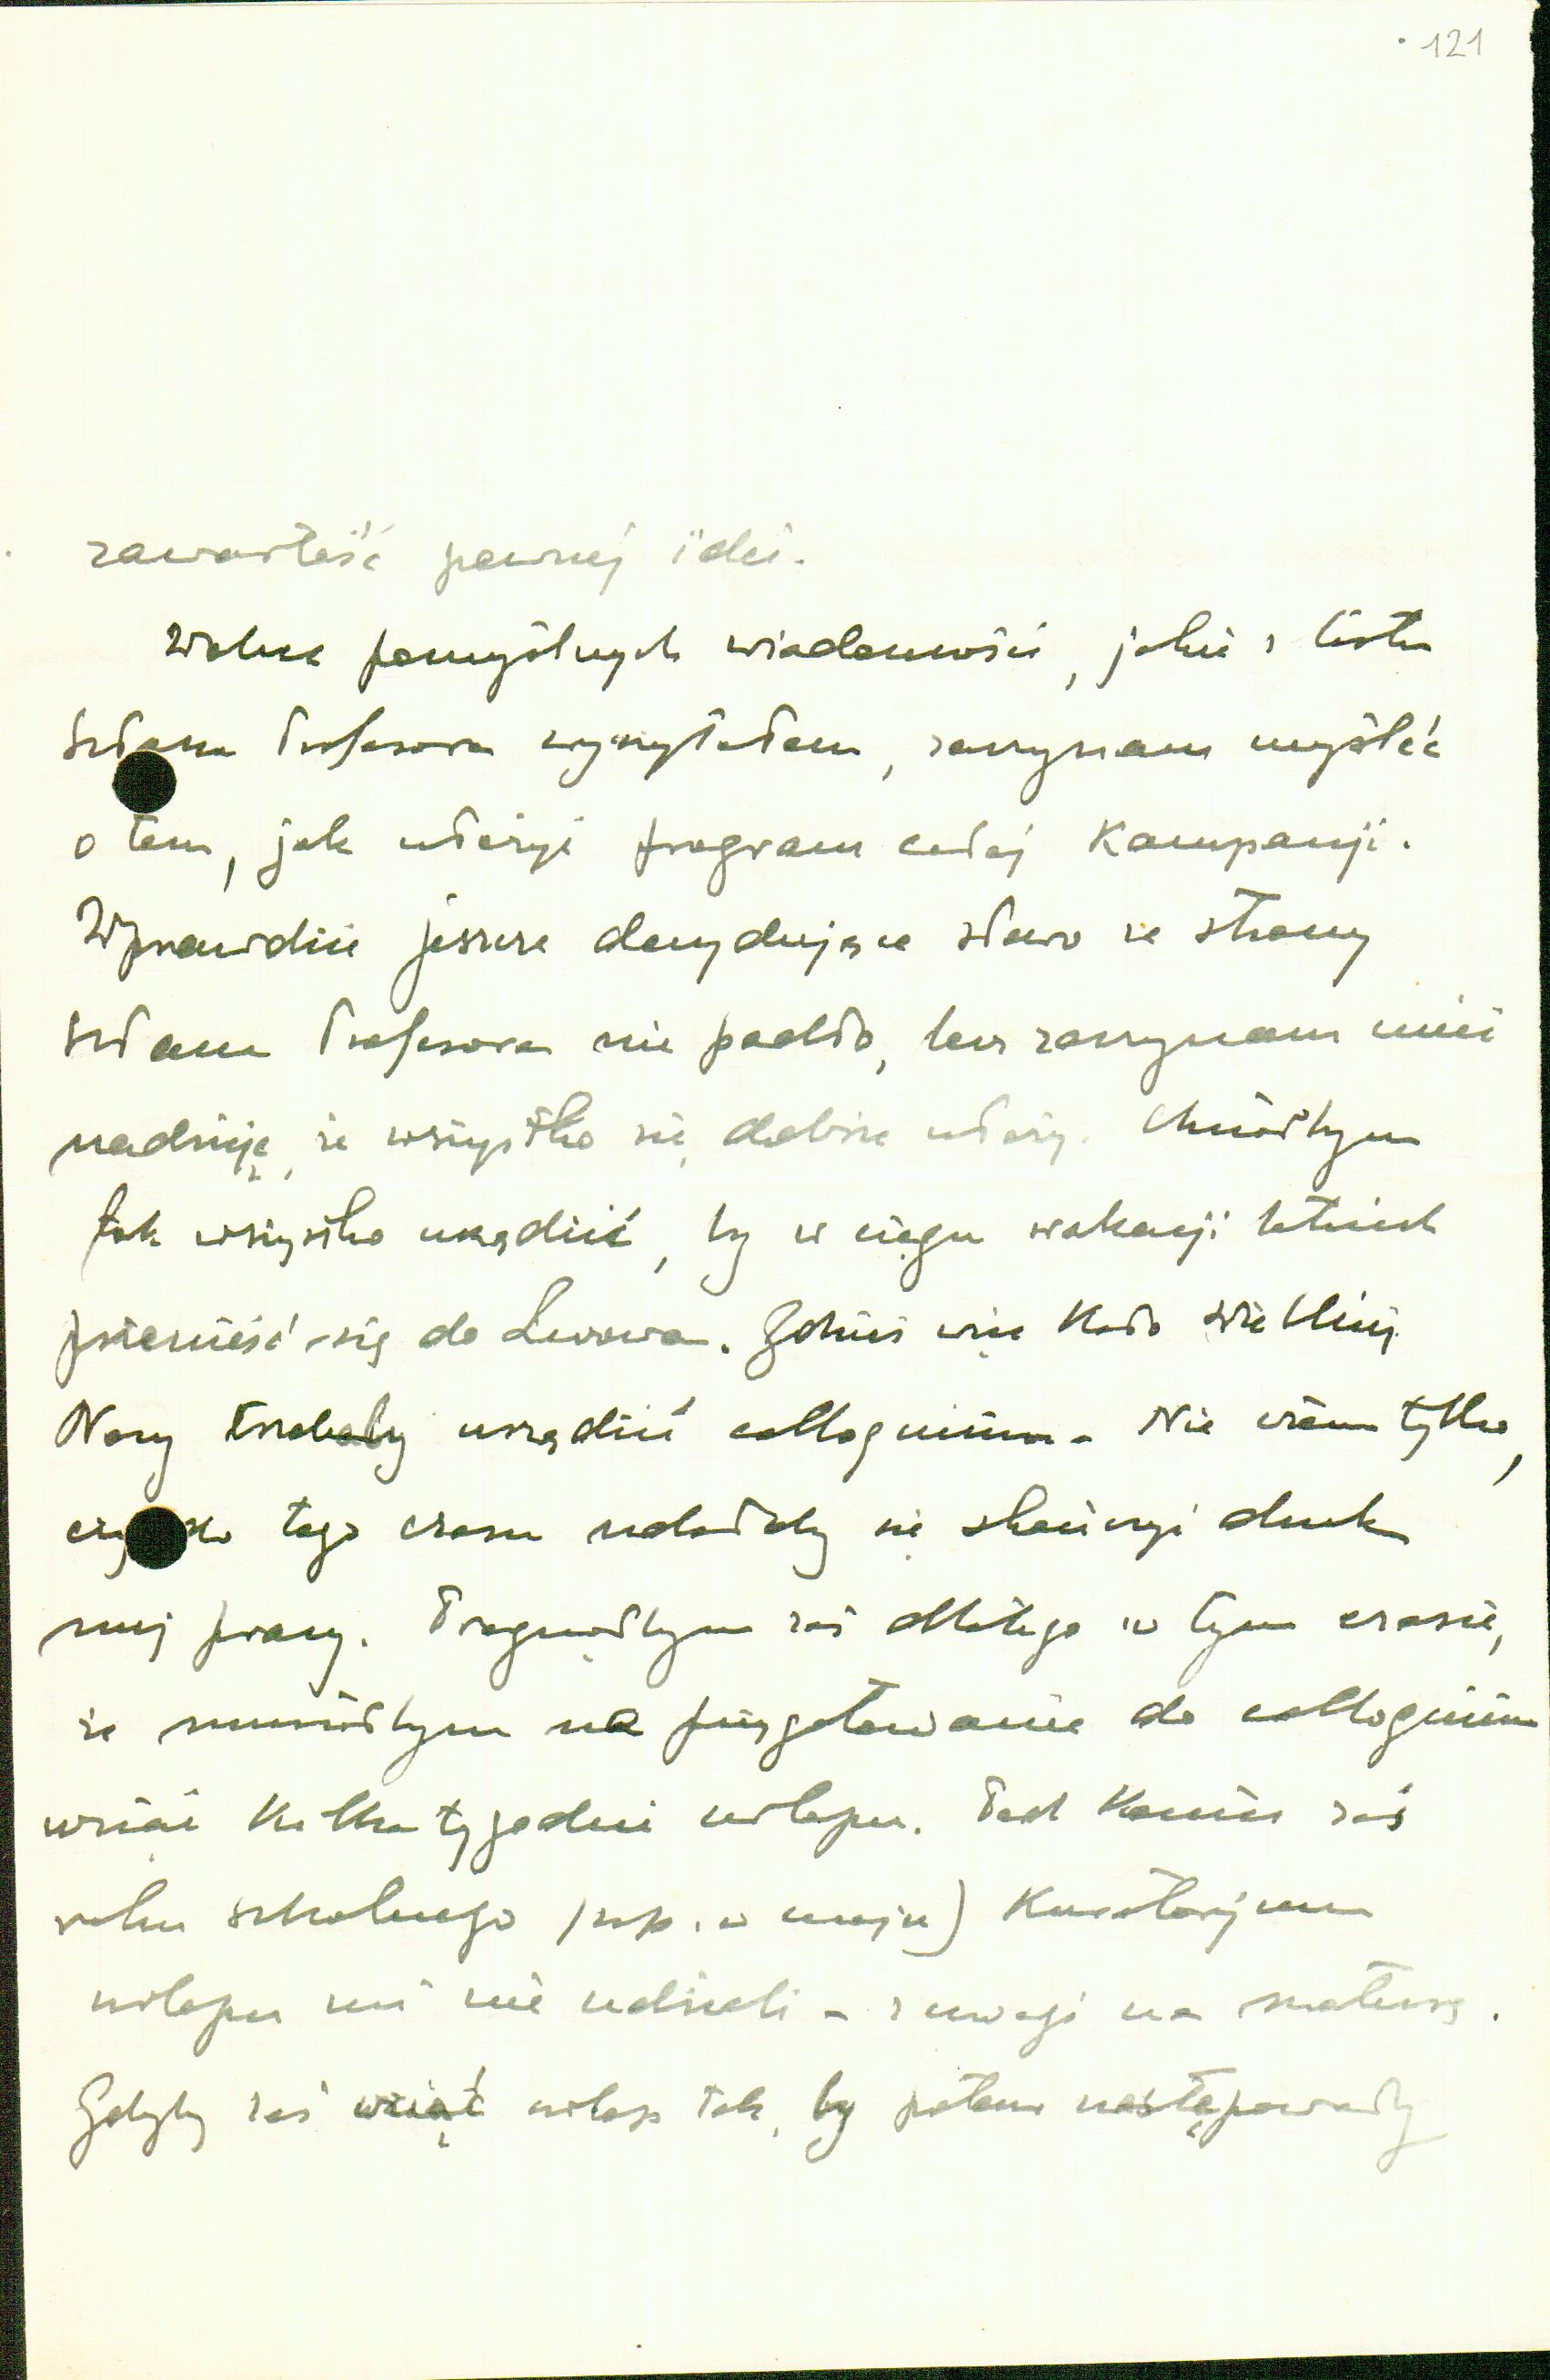 121
zawartość pewnej idei.
Wobec pomyślnych wiadomości, jakie z listu
Kochanego Profesora wyczytałem, zaczynam myśleć
o tem, jak ułożyć program całej kampanji.
Wprawdzie jeszcze decydujące słowo ze strony
Profesora nie padło, lecz zaczynam mieć
nadzieję, że wszystko się dobrze ułoży. Chciałbym
tak wszystko urządzić, by w ciągu wakacji letnich
przenieść się do Lwowa. Gdzieś więc koło Wielkiej
Nocy trzebaby urządzić colloquium. Nie wiem tylko,
czy do tego czasu udałoby się skończyć druk
mej pracy. Pragnąłbym zaś dlatego w tym czasie,
że musiałbym na przygotowanie do colloquium
wziąć kilka tygodni urlopu. Pod koniec zaś
roku szkolnego (np. w maju) Kuratorjum
urlopu mi nie udzieli - z uwagi na maturę.
Gdyby zaś wziąć urlop tak, by potem następowały